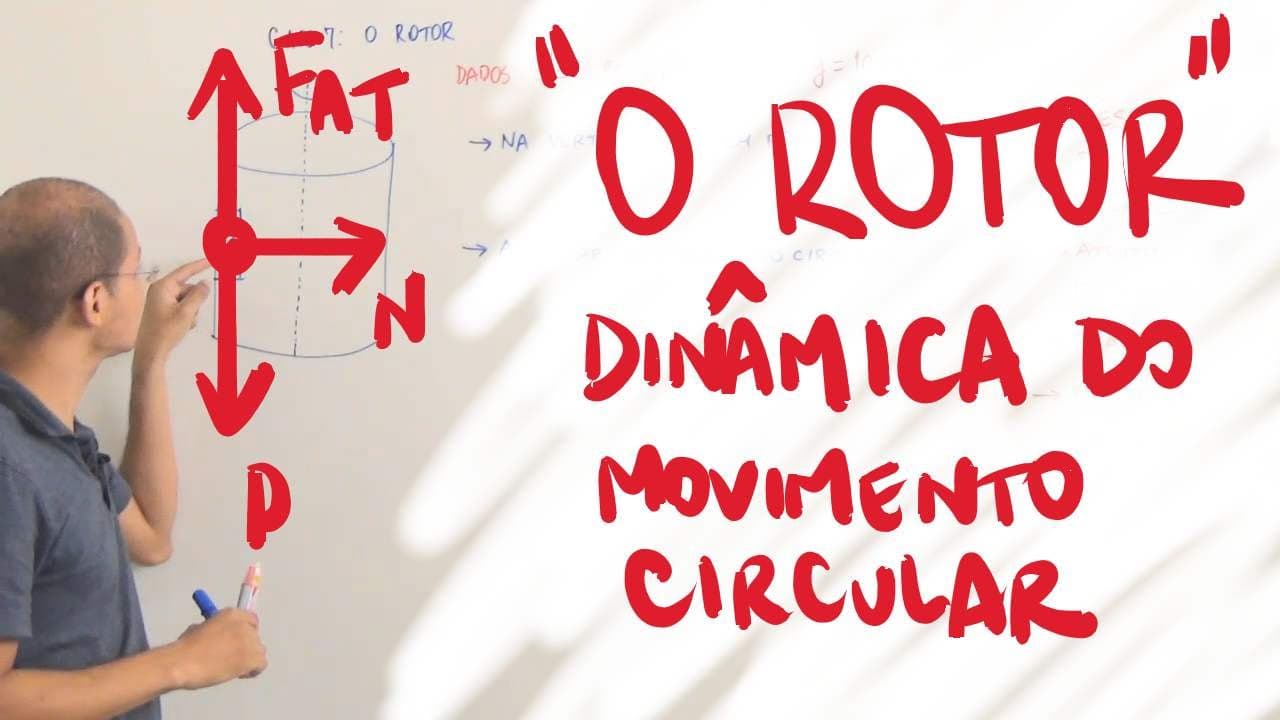 O ROTOR
DADOS
→ NA
FAT
N
P
"O ROTOR"
DINÂMICA DO
MOVIMENTO
CIRCULAR